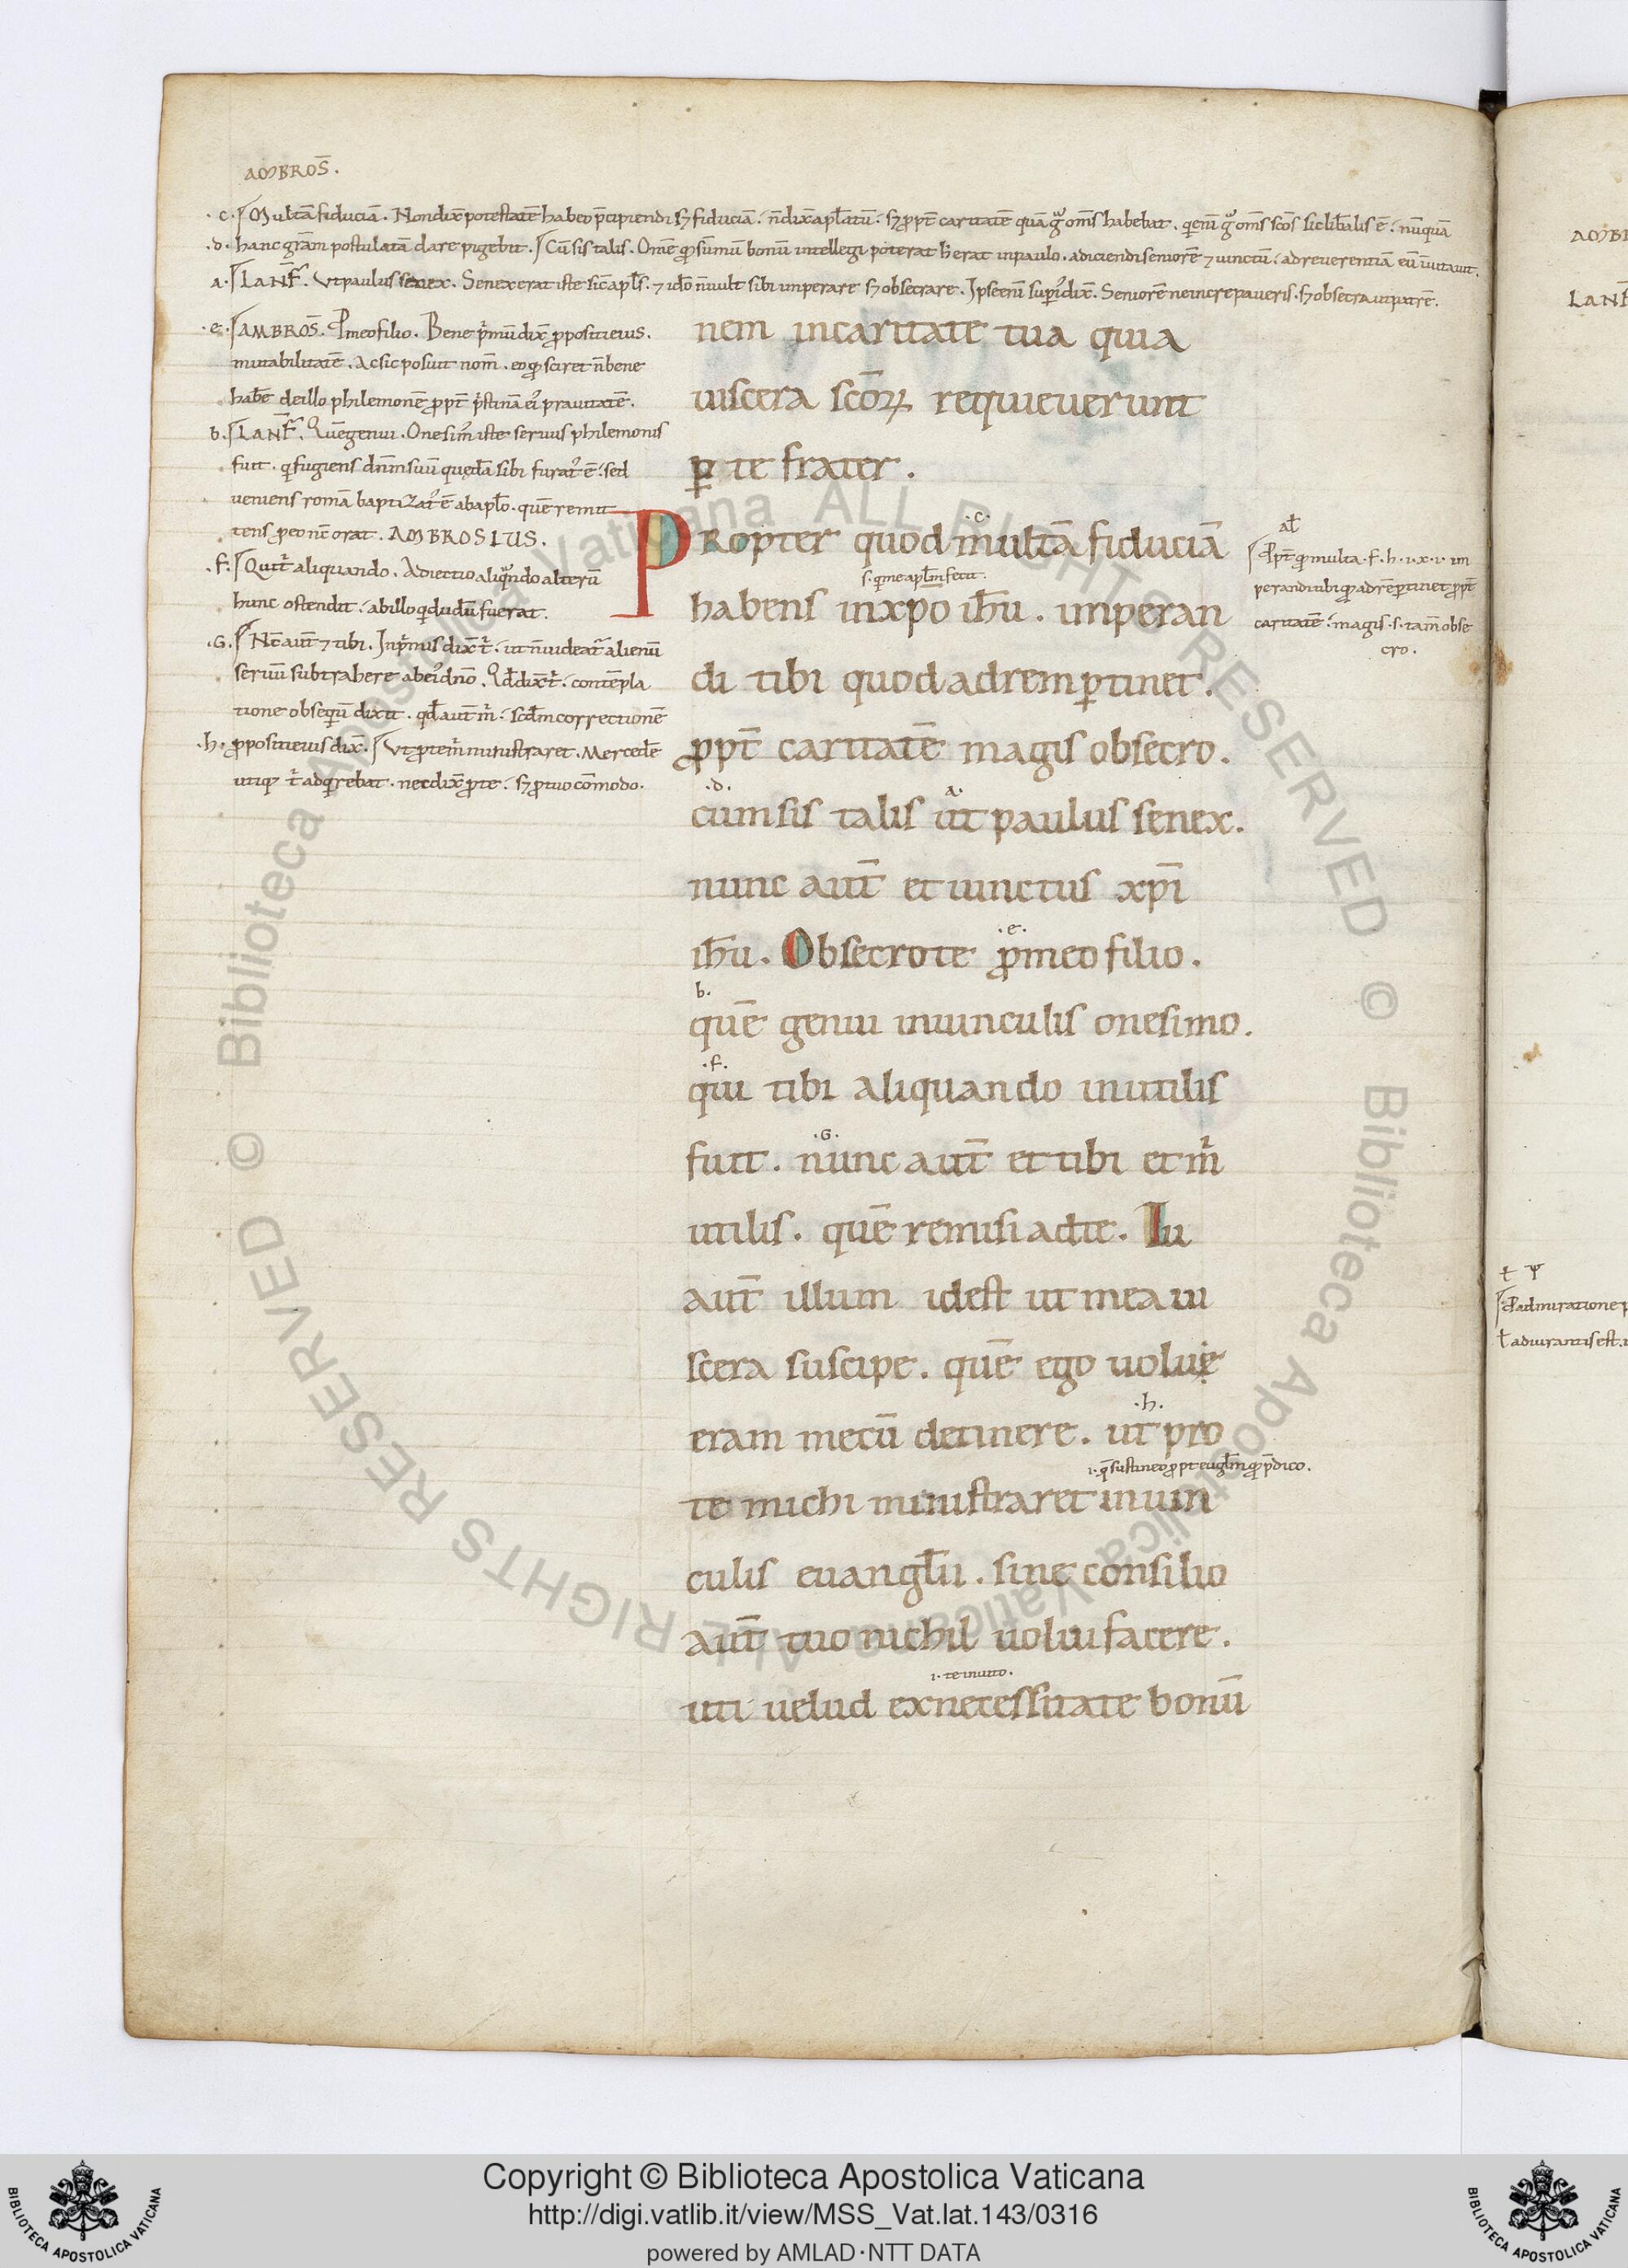 AMBROS̄.
.c. Multā fiduciā. Non dix̄ potestatē habeo p̄cipiendi sꝫ fiduciā. n̄ dix̄ apl̄atū. sꝫ ꝓpt̄ caritatē quā erga om̄s habebat. qi enī erga om̄s sc̄os sic lib̄alis ē. nūquā
.d. hanc grām postulatā dare pigebit. Cū sis talis. Om̄e qd̄ sūmū bonū intellegi poterat h̄ erat in paulo. adiciendi seniorē ⁊ uinctū. ad reuerentiā eū inuitauit.
a. LANF̄. Vt paulus senex. Senex erat iste sic̄ apl̄s. ⁊ idō n̄ uult sibi imperare sꝫ obsecrare. Ipse enī suꝑi dix̄. Seniorē ne increpaueris. sꝫ obsecra ut patrē.
.e. AMBROS̄. P meo filio. Bene p̄mū dix̄ ꝓpositi eius.
mutabilitatē. Ac sic posuit nom̄. eo qd̄ sciret n̄ bene
hab̄e de illo philemonē ꝓpt̄ p̄stinā ei prauitatē.
b. LANF̄. Quē genui. Onesim̓ iste seruus philemonis
fuit. qi fugiens dn̄m suū quędā sibi furat̓ ē. sed
ueniens romā baptizat̓ ē ab apl̄o. quē remit
tens ꝑ eo nc̄ orat. AMBROSIUS.
.f. Qui t̓ aliquando. Adiectio aliqndo alterū
hunc ostendit. ab illo qi dudū fuerat.
.G. Nc̄ aut̄ ⁊ tibi. In p̄mis dix̄ t̓. ut n̄ uideat̓ alienū
seruū subtrahere ab ei dn̄o. Qd̄ dix̄ t̓. contēpla
tione obsequiū dixit. qd̄ aut̄ m̓. scd̄m correctionē
.h. ꝓpositi eius dix̄. Vt ꝓ te m̓ ministraret. Mercedē
utiqꝫ t̓ adqirebat. nec dix̄ ꝓ te. sꝫ ꝓ tuo cōmodo.
nem in caritate tua quia
uiscera sc̄oꝝ requieuerunt
ꝑ te frater.
.c.
PROpter quod multā fiduciā
s. qi me apl̄m fecit.
habens in xp̄o ih̄u. imperan
di tibi quod ad rem ꝑtinet.
ꝓpt̄ caritatē magis obsecro.
.d. a.
cum sis talis ut paulus senex.
nunc aut̄ et uinctus xp̄i
.e.
ih̄u. Obsecro te ꝓ meo filio.
b.
quē genui in uinculis onesimo.
.f.
qui tibi aliquando inutilis
.G.
fuit. nunc aut̄ et tibi et m̓
utilis. quē remisi ad te. Tu
aut̄ illum id est ut mea ui
scera suscipe. quē ego uolue
.h.
eram mecū detinere. ut pro
i. qę sustineo ꝓpt eugl̄m qd̄ p̄dico.
te michi ministraret in uin
culis euangl̄ii. sine consilio
aut̄ tuo nichil uolui facere.
i. te inuito.
uti uelud ex necessitate bonū
al̄
Ppt̄ qd̄ multa. f. h. i. x. i. im
perandi tibi qd̄ ad rē ꝑtinet ꝓpt̄
caritatē. magis. s. tam̄ obse
cro.
AMB
LANF̄
P admiratione
ł adiurantis est.
Copyright © Biblioteca Apostolica Vaticana
http://digi.vatlib.it/view/MSS_Vat.lat.143/0316
powered by AMLAD·NTT DATA